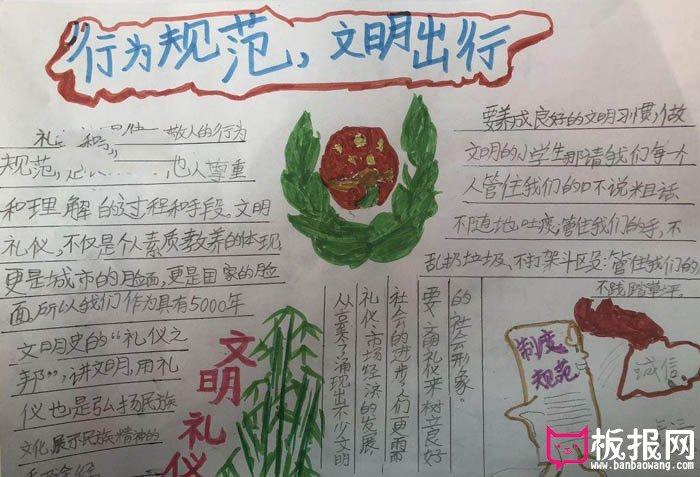 行为规范，文明出行
礼 和 敬人的行为
规范， 他人尊重
和理解的过程和手段。文明
礼仪，不仅是个人素质教养的体现，
更是城市的脸面，更是国家的脸
面。所以我们作为具有5000年
文明史的“礼仪之
邦”，讲文明，用礼
仪也是弘扬民族
文化，展示民族精神的
要养成良好的文明习惯，做
文明的小学生那请我们每个
人管住我们的口不说粗话
不随地吐痰；管住我们的手，不
乱扔垃圾、不打架斗殴；管住我们的
不践踏草坪。
的社会形象”
要文明礼仪来树立良好
社会的进步了人们更需
礼仪、市场经济的发展
从古至今涌现出不少文明
文明礼仪
制度
规范
诚信
板报网
www.banbaowang.com